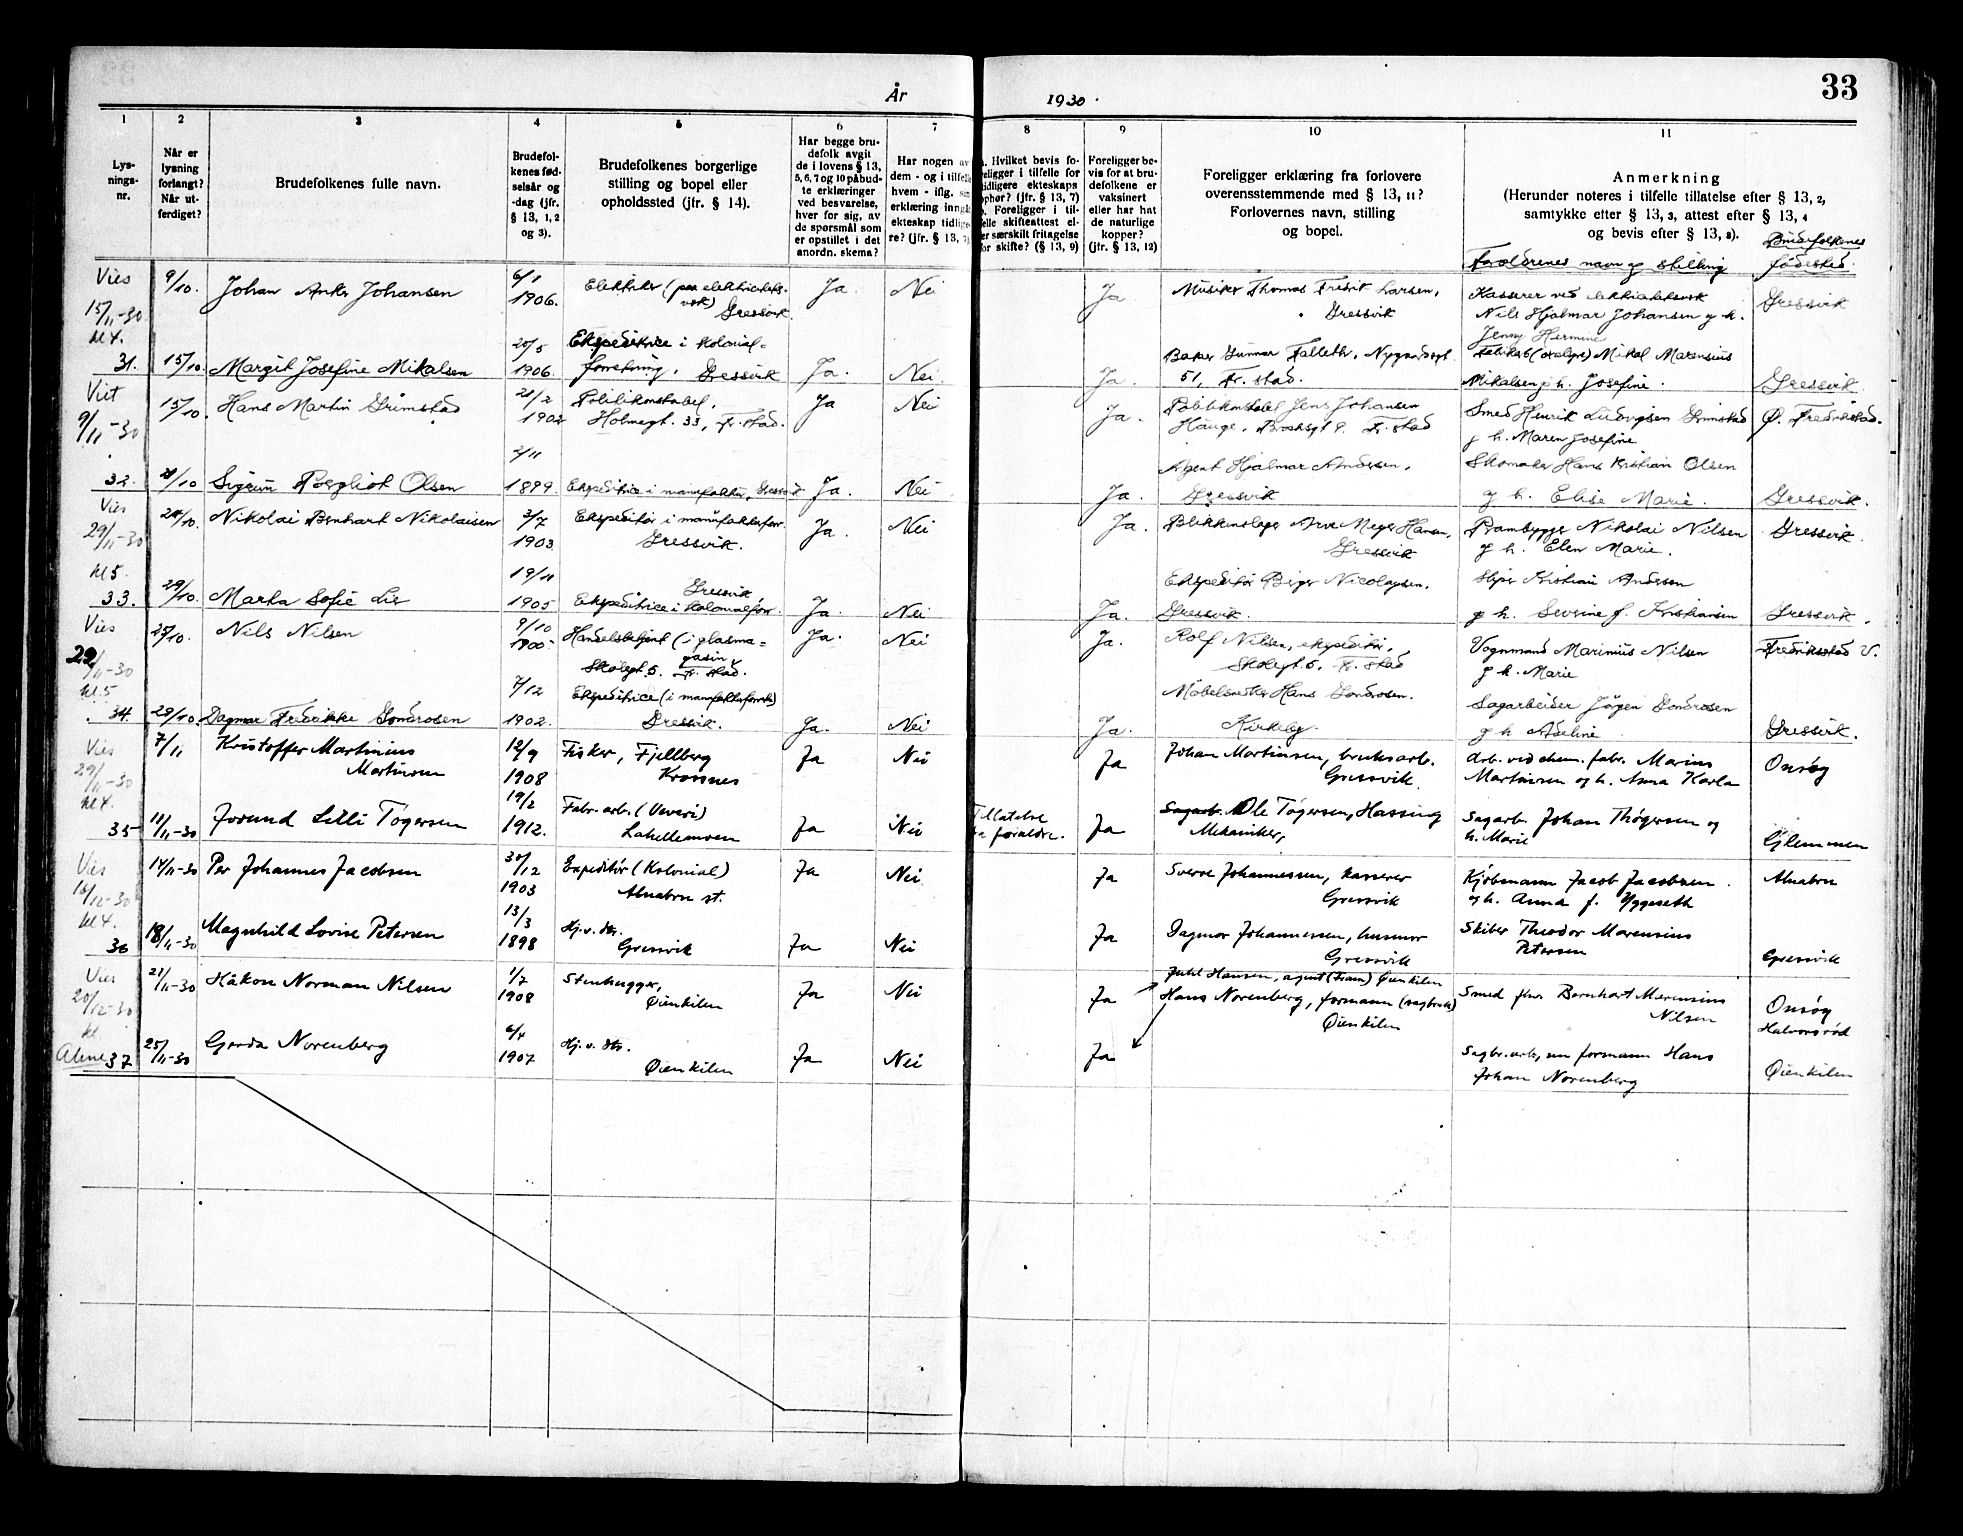 33
År 1930.
1 2 3 4 5 6 7 8 9 10 11
Lys-
nings-
nr.
Når er
lysning
forlangt?
Når ut-
ferdiget?
Brudefolkenes fulle navn.
Brudefol-
kenes fød-
selsår og
-dag (jfr.
§ 13, 1, 2
og 3).
Brudefolkenes borgerlige
stilling og bopel eller
opholdssted (jfr. § 14).
Har begge bru-
defolk avgit
de i lovens § 13,
5, 6, 7 og 10 påbud-
te erklæringer
ved besvarelse,
hver for sig, av
de spørsmål som
er opstillet i det
anordn. skema?
Har nogen av
dem - og i tilfelle
hvem - iflg. sin
erklæring inngå
ekteskap tidlige
re? (jfr. § 13, 7)
Hvilket bevis fo-
religger i tilfelle for
tidligere ekteskaps
ophør? (jfr. § 13, 7)
b. Foreligger i til-
felle skifteattest el-
ler særskilt fritagelse
for skifte? (§ 13, 9)
Foreligger be-
vis for at bru-
defolkene er
vaksinert
eller har hat
de naturlige
kopper?
(jfr. § 13, 12)
Foreligger erklæring fra forlovere
overensstemmende med § 13, 11?
Forlovernes navn, stilling
og bopel.
Anmerkning
(Herunder noteres i tilfelle tillatelse efter § 13, 2,
samtykke etter § 13, 3, attest efter § 13, 4
og bevis efter § 13, 8).
Foreldrenes navn og stilling
Brudefolkenes
fødested.
Vies
15/11-30
kl 4.
31.
9/10. Johan Anker Johansen
6/1
1906.
Elektriker (
verk) Gressvik
Ja. Nei Ja
Musiker Thomas Fredrik Larsen,
Gressvik
Kasserer ved elektricitetsverk
Nils Hjalmar Johansen og h.
Jenny Hermine
Gressvik
15/10. Margit Josefine Mikalsen
20/5
1906.
Ekspeditrice i kolonial-
forretning. Gressvik
Ja. Nei. Ja.
Baker Gunnar Falleth. Nygaardsgt.
51, Fr. stad.
Mikal Marensius
Mikalsen og h. Josefine.
Gressvik.
Viet
9/11-30
32.
15/10. Hans Martin Grimstad
21/2
1902
Politikonstabel,
Holmegt. 33, Fr. stad.
Ja Nei Ja.
Politikonstabel Jens Johansen
Hauge, Fr. stad
Smed Henrik Ludvigsen Grimstad
g h. Maren Josefine
Ø. Fredrikstad.
21/10 Sigrun Bergliot Olsen
2/11
1899.
Ekspeditrice i manufaktur, Gressvik
Ja. Nei Ja.
Agent Hjalmar Andersen,
Gressvik
Skomaker Hans Kristian Olsen
g h. Elise Marie.
Gressvik.
Vies
29/11-30
kl 5.
33.
24/10. Nikolai Bernhart Nikolaisen
3/7
1903.
Ekspeditør i manufakturforr.
Gressvik.
Ja. Nei Ja.
Blikkenslager Arve Meyer Hansen,
Gressvik
Prambygger Nikolai Nilsen
g h. Elen Marie.
Gressvik.
29/10. Marta Sofie Lie
19/11
1905
Gressvik
Ekspeditrice i kolonialforr.
Ja. Nei Ja.
Ekspeditør Birger Nicolaysen.
Gressvik.
Kristian Andersen
g h. Severine f. Kristiansen
Gressvik.
Vies
29/11-30
kl 5
34.
25/10. Nils Nilsen
9/10
1900
Handelsbetjent (i glasma-
gasin
Skolegt 5. Fr. stad.
Ja. Nei Ja.
Rolf Nilsen, ekspeditør,
Skolegt 5, Fr. stad
Vognmand Marinius Nilsen
g h. Marie
Fredrikstad V.
29/10. Dagmar Fredrikke Gondrosen
7/12
1902.
Ekspeditrice (i manufakturforretn)
Gressvik.
Ja. Nei Ja.
Møbelsnekker Hans Gondrosen.
Kirkeby.
Sagarbeider Jörgen Gondrosen
g h Adeline
Gressvik.
Vies
29/11-30
kl 4.
35
7/11 Kristoffer Martinius
Martinsen
12/9
1908
Fisker, Fjellberg
Krossnes
Ja Nei Ja
Johan Martinsen, bruksarb.
Gressvik.
Arb. ved chem. fabr. Marius
Martinsen og h. Anna Karla
Onsøy
11/11-30 Jorund Lilli Tøgersen
19/2
1912.
Fabr.-arb. (Veveri)
Lahellemoen
Ja Nei
Tillatelse
fra foreldre.
Ja
Sagarb. Ole Tøgersen, Hassing
Mekaniker,
Sagarb. Johan Thøgersen og
h. Marie
Glemmen
Vies
16/12-30
kl 4.
36
14/11-30 Per Johannes Jacobsen
30/12
1903
Expeditør (Kolonial)
Alnabru st.
Ja Nei Ja
Sverre Johannessen, kasserer
Gressvik
Kjøbmann Jacob Jacobsen
og h. Anna f. Yggeseth
Alnabru
18/11-30 Magnhild Lovise Petersen
13/3
1898
Hj. v. hs.
Gressvik
Ja Nei Ja
Dagmar Johannessen, husmor
Gressvik
Skiber Theodor Marensius
Petersen
Gressvik
Vies
20/12-30
kl
Alene 37
21/11-30 Håkon Norman Nilsen
1/7
1908
Stenhugger,
Øienkilen
Ja Nei Ja
Juhl Hansen, agent (tran) Øienkilen
Hans Norenberg, formann (sagbruk)
Øienkilen
Smed Bernhart Marensius
Nilsen
Onsøy
Halvorsrød
25/11-30 Gerda Norenberg
6/4
1907
Hj. v. hs.
Øienkilen
Ja Nei Ja
Sagbr.arb., nu formann Hans
Johan Norenberg
Øienkilen